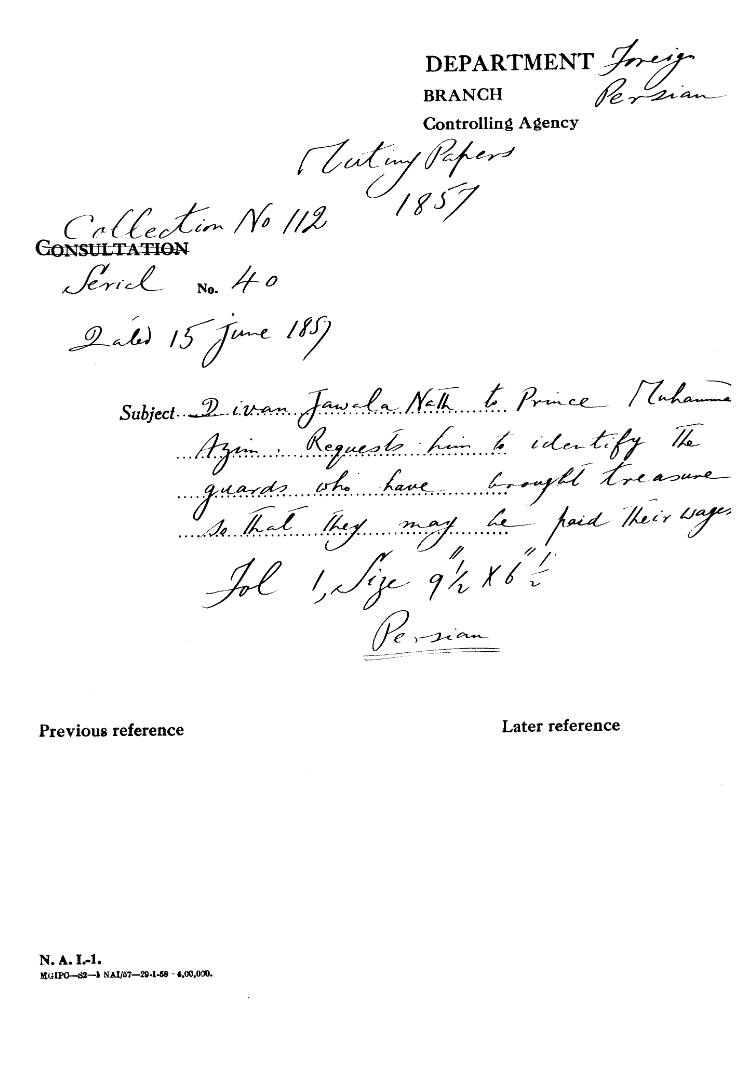 DEPARTMENT Foreign
BRANCH Persian
Controlling Agency
Mutiny Papers
1857
Collection No 112
CONSULTATION
Serial No. 40
Dated 15 June 1857
Subject Divan Jawala Nath to Prince Muhamma
Azim. Requests him to identify the
guards who have brought treasure
so that they may be paid their wages
Fol 1, Size 9"½ X 6"½
Persian
Previous reference Later reference
N. A. I.-1.
MGIPC—S2—1 NAI/57—29-1-58 - 4,00,000.